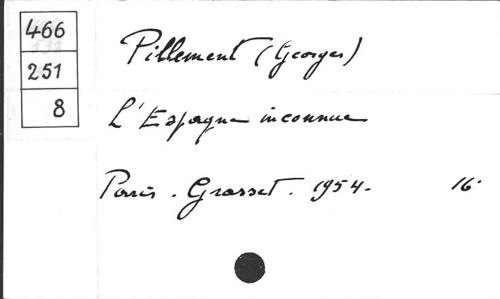 466
251
8
Pillement (Georges)
L'Espagne inconnue
Paris. Grasset. 1954- 16°